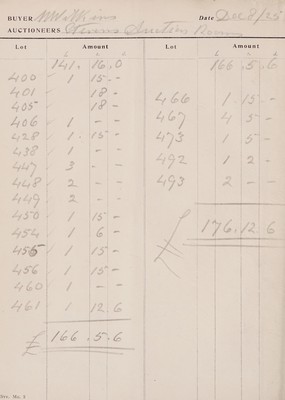 BUYER Date Dec 8/25
AUCTIONEERS
Lot Amount
£ s. d.
141. 16. 0
400 1 15 -
401 18 -
405 18 -
406 1 - -
428 1 . 15 -
438 1 - -
447 3 - -
448 2 - -
449 2 - -
450 1 15 -
454 1 6 -
455 1 15 -
456 1 15 -
460 1 - -
461 1 12. 6
£ 166 . 5. 6
Lot Amount
£ s. d.
166 . 5. 6
466 1 . 15 -
467 4 5 -
473 1 5 -
492 1 2 -
493 2 - -
£ 176. 12 6